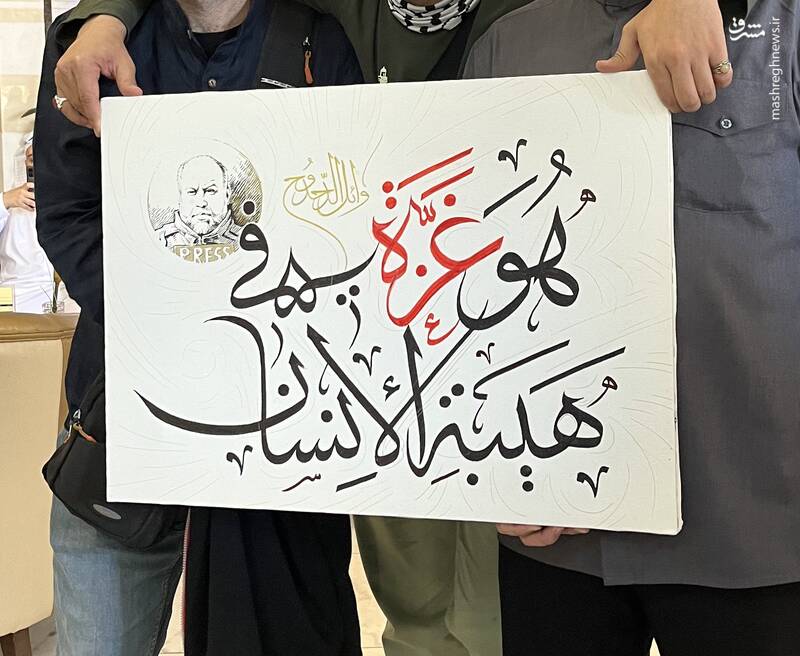 مشرق
mashreghnews.ir
وائل الدّحدُوح
PRESS
هُوَ غَزَّة في
هَيبَةِ الإِنسان